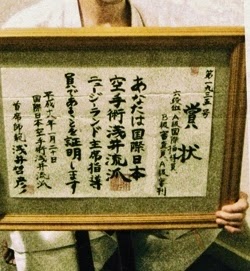 第一九三五号
賞状
六段位 A級国際指導員
B級審査員 A級審判
あなたは国際日本
空手術浅井流派
ニュージーランド主席指導
員であることを証明します
平成十八年一月二十日
国際日本空手術浅井流派
首席師範 浅井哲彦